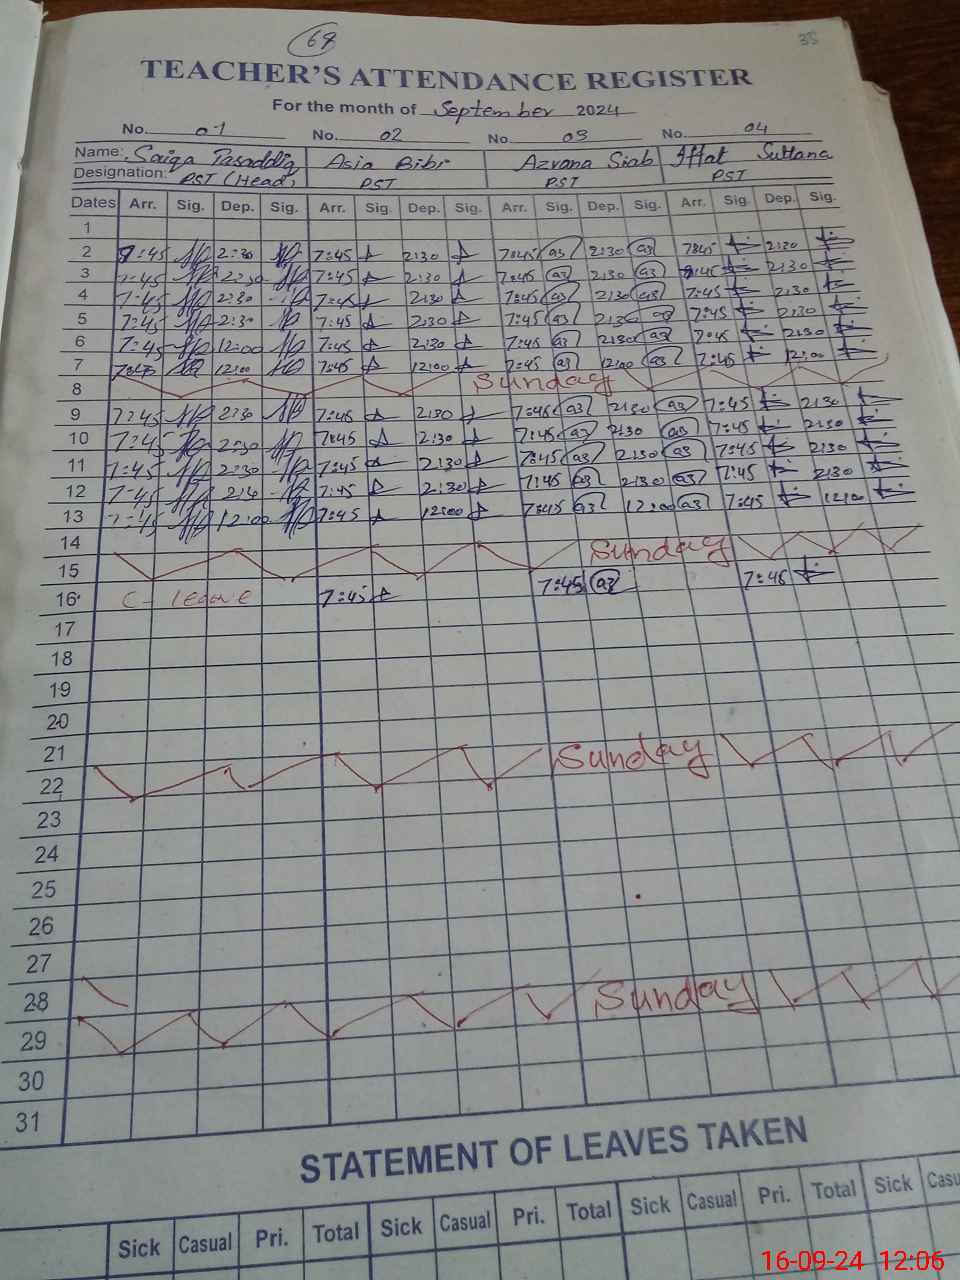 68
35
TEACHER'S ATTENDANCE REGISTER
For the month of September 2024
No. 01 No. 02 No. 03 No. 04
Name: Saiqa Tasaddiq Asia Bibi Azvana Siab Iffat Sultana
Designation: PST (Head) PST PST PST
Dates Arr. Sig. Dep. Sig. Arr. Sig. Dep. Sig. Arr. Sig. Dep. Sig. Arr. Sig. Dep. Sig.
1
2 7:45 2:30 7:45 2:30 7:45 2:30 7:45 2:30
3 7:45 2:30 7:45 2:30 7:45 2:30 7:45 2:30
4 7:45 2:30 7:45 2:30 7:45 2:30 7:45 2:30
5 7:45 2:30 7:45 2:30 7:45 2:30 7:45 2:30
6 7:45 12:00 7:45 2:30 7:45 2:30 7:45 2:30
7 7:45 12:00 7:45 12:00 7:45 12:00 7:45 12:00
8 Sunday
9 7:45 2:30 7:45 2:30 7:45 2:30 7:45 2:30
10 7:45 2:30 7:45 2:30 7:45 2:30 7:45 2:30
11 7:45 2:30 7:45 2:30 7:45 2:30 7:45 2:30
12 7:45 7:45 2:30 7:45 2:30 7:45 2:30
13 7:45 12:00 7:45 12:00 7:45 12:00 7:45 12:00
14
15 Sunday
16 C- leave 7:45 7:45 7:45
17
18
19
20
21
22 Sunday
23
24
25
26
27
28
29 Sunday
30
31
STATEMENT OF LEAVES TAKEN
Sick Casual Pri. Total Sick Casual Pri. Total Sick Casual Pri. Total Sick Casu
16-09-24 12:06